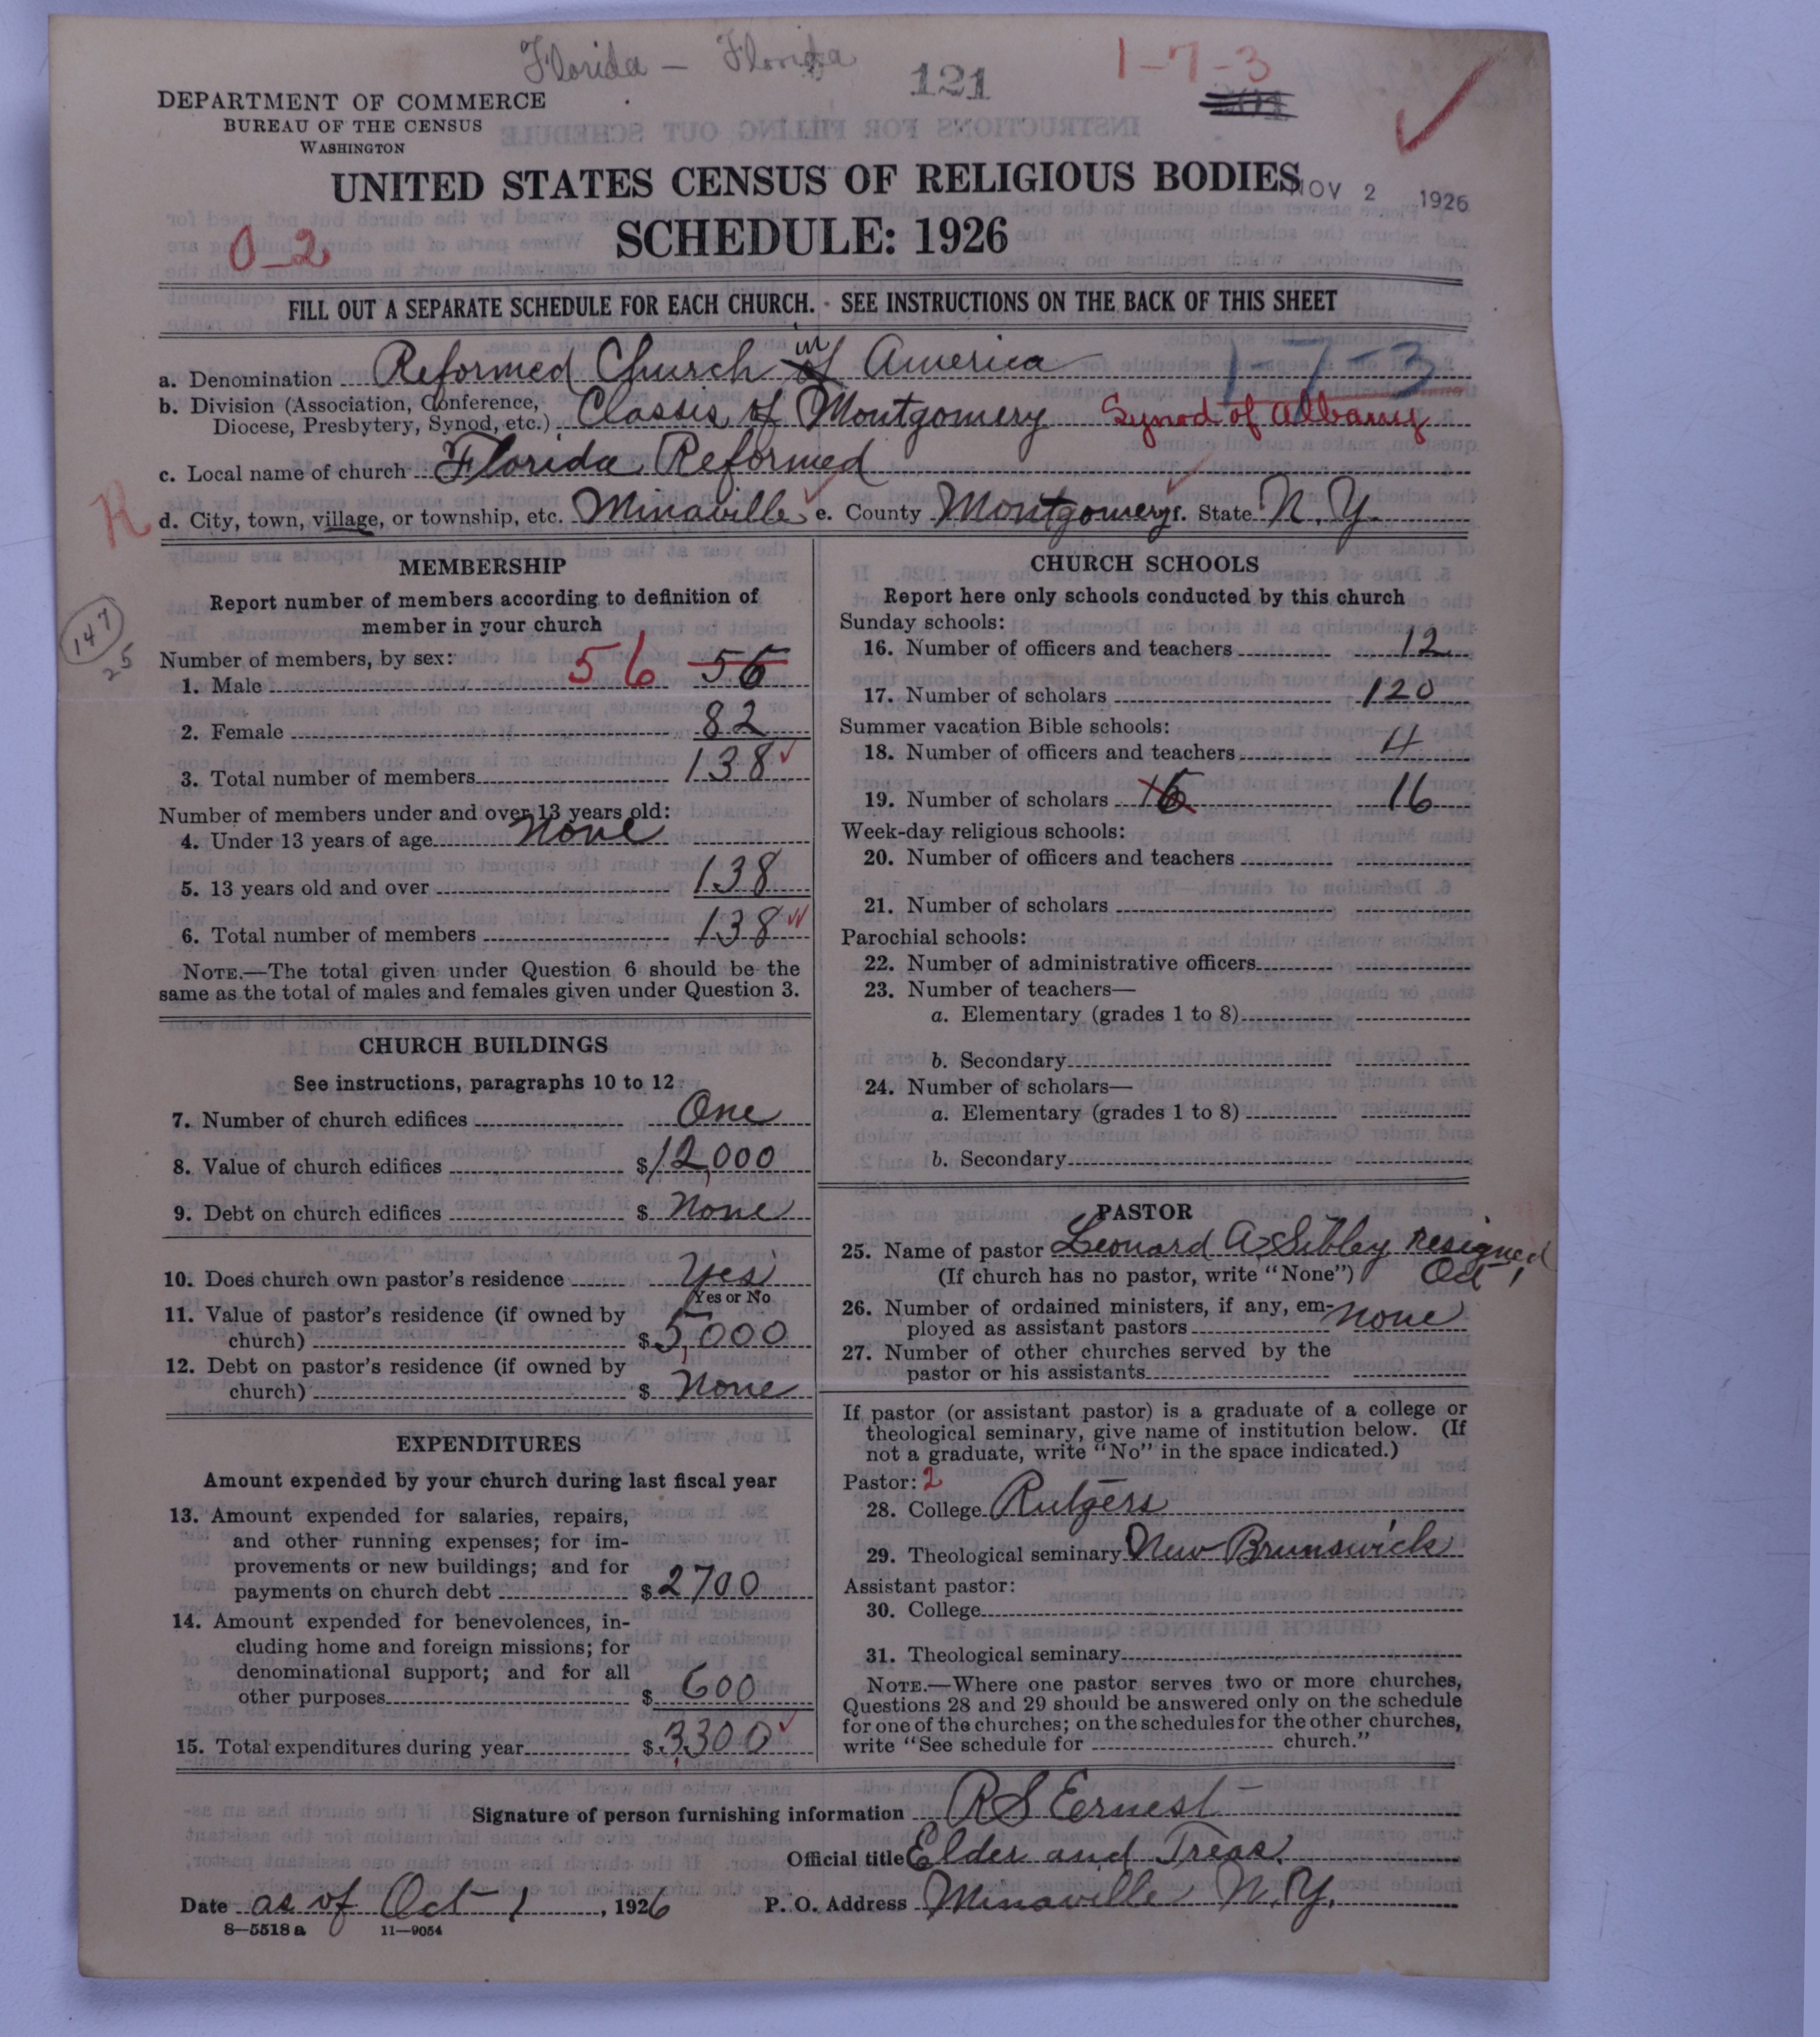 Florida — Florida
121
1-7-3
DEPARTMENT OF COMMERCE
BUREAU OF THE CENSUS
WASHINGTON
UNITED STATES CENSUS OF RELIGIOUS BODIES
NOV 2 1926
SCHEDULE: 1926
0-2
FILL OUT A SEPARATE SCHEDULE FOR EACH CHURCH. SEE INSTRUCTIONS ON THE BACK OF THIS SHEET
a. Denomination Reformed Church of in America 1-7-3
b. Division (Association, Conference,
Diocese, Presbytery, Synod, etc.) Classis of Montgomery Synod of Albany
c. Local name of church Florida Reformed
R
d. City, town, village, or township, etc. Minaville e. County Montgomery f. State N.Y.
147
25
MEMBERSHIP
Report number of members according to definition of
member in your church
Number of members, by sex:
1. Male 56 56
2. Female 82
3. Total number of members 138
Number of members under and over 13 years old:
4. Under 13 years of age None
5. 13 years old and over 138
6. Total number of members 138
NOTE.—The total given under Question 6 should be the
same as the total of males and females given under Question 3.
CHURCH BUILDINGS
See instructions, paragraphs 10 to 12
7. Number of church edifices One
8. Value of church edifices $12,000
9. Debt on church edifices $ None
10. Does church own pastor's residence Yes
Yes or No
11. Value of pastor's residence (if owned by
church) $5,000
12. Debt on pastor's residence (if owned by
church) $ None
EXPENDITURES
Amount expended by your church during last fiscal year
13. Amount expended for salaries, repairs,
and other running expenses; for im-
provements or new buildings; and for
payments on church debt $2700
14. Amount expended for benevolences, in-
cluding home and foreign missions; for
denominational support; and for all
other purposes $ 600
15. Total expenditures during year $3,300
CHURCH SCHOOLS
Report here only schools conducted by this church
Sunday schools:
16. Number of officers and teachers 12
17. Number of scholars 120
Summer vacation Bible schools:
18. Number of officers and teachers 4
19. Number of scholars 16 16
Week-day religious schools:
20. Number of officers and teachers
21. Number of scholars
Parochial schools:
22. Number of administrative officers
23. Number of teachers—
a. Elementary (grades 1 to 8)
b. Secondary
24. Number of scholars—
a. Elementary (grades 1 to 8)
b. Secondary
PASTOR
25. Name of pastor Leonard A Sibley Resigned
(If church has no pastor, write "None") Oct 1
26. Number of ordained ministers, if any, em-
ployed as assistant pastors None
27. Number of other churches served by the
pastor or his assistants
If pastor (or assistant pastor) is a graduate of a college or
theological seminary, give name of institution below. (If
not a graduate, write "No" in the space indicated.)
Pastor: 2
28. College Rutgers
29. Theological seminary New Brunswick
Assistant pastor:
30. College
31. Theological seminary
NOTE.—Where one pastor serves two or more churches,
Questions 28 and 29 should be answered only on the schedule
for one of the churches; on the schedules for the other churches,
write "See schedule for church."
Signature of person furnishing information R S Ernest
Official title Elder and Treas.
Date as of Oct 1, 1926 P. O. Address Minaville N.Y.
8—5518 a 11—9054